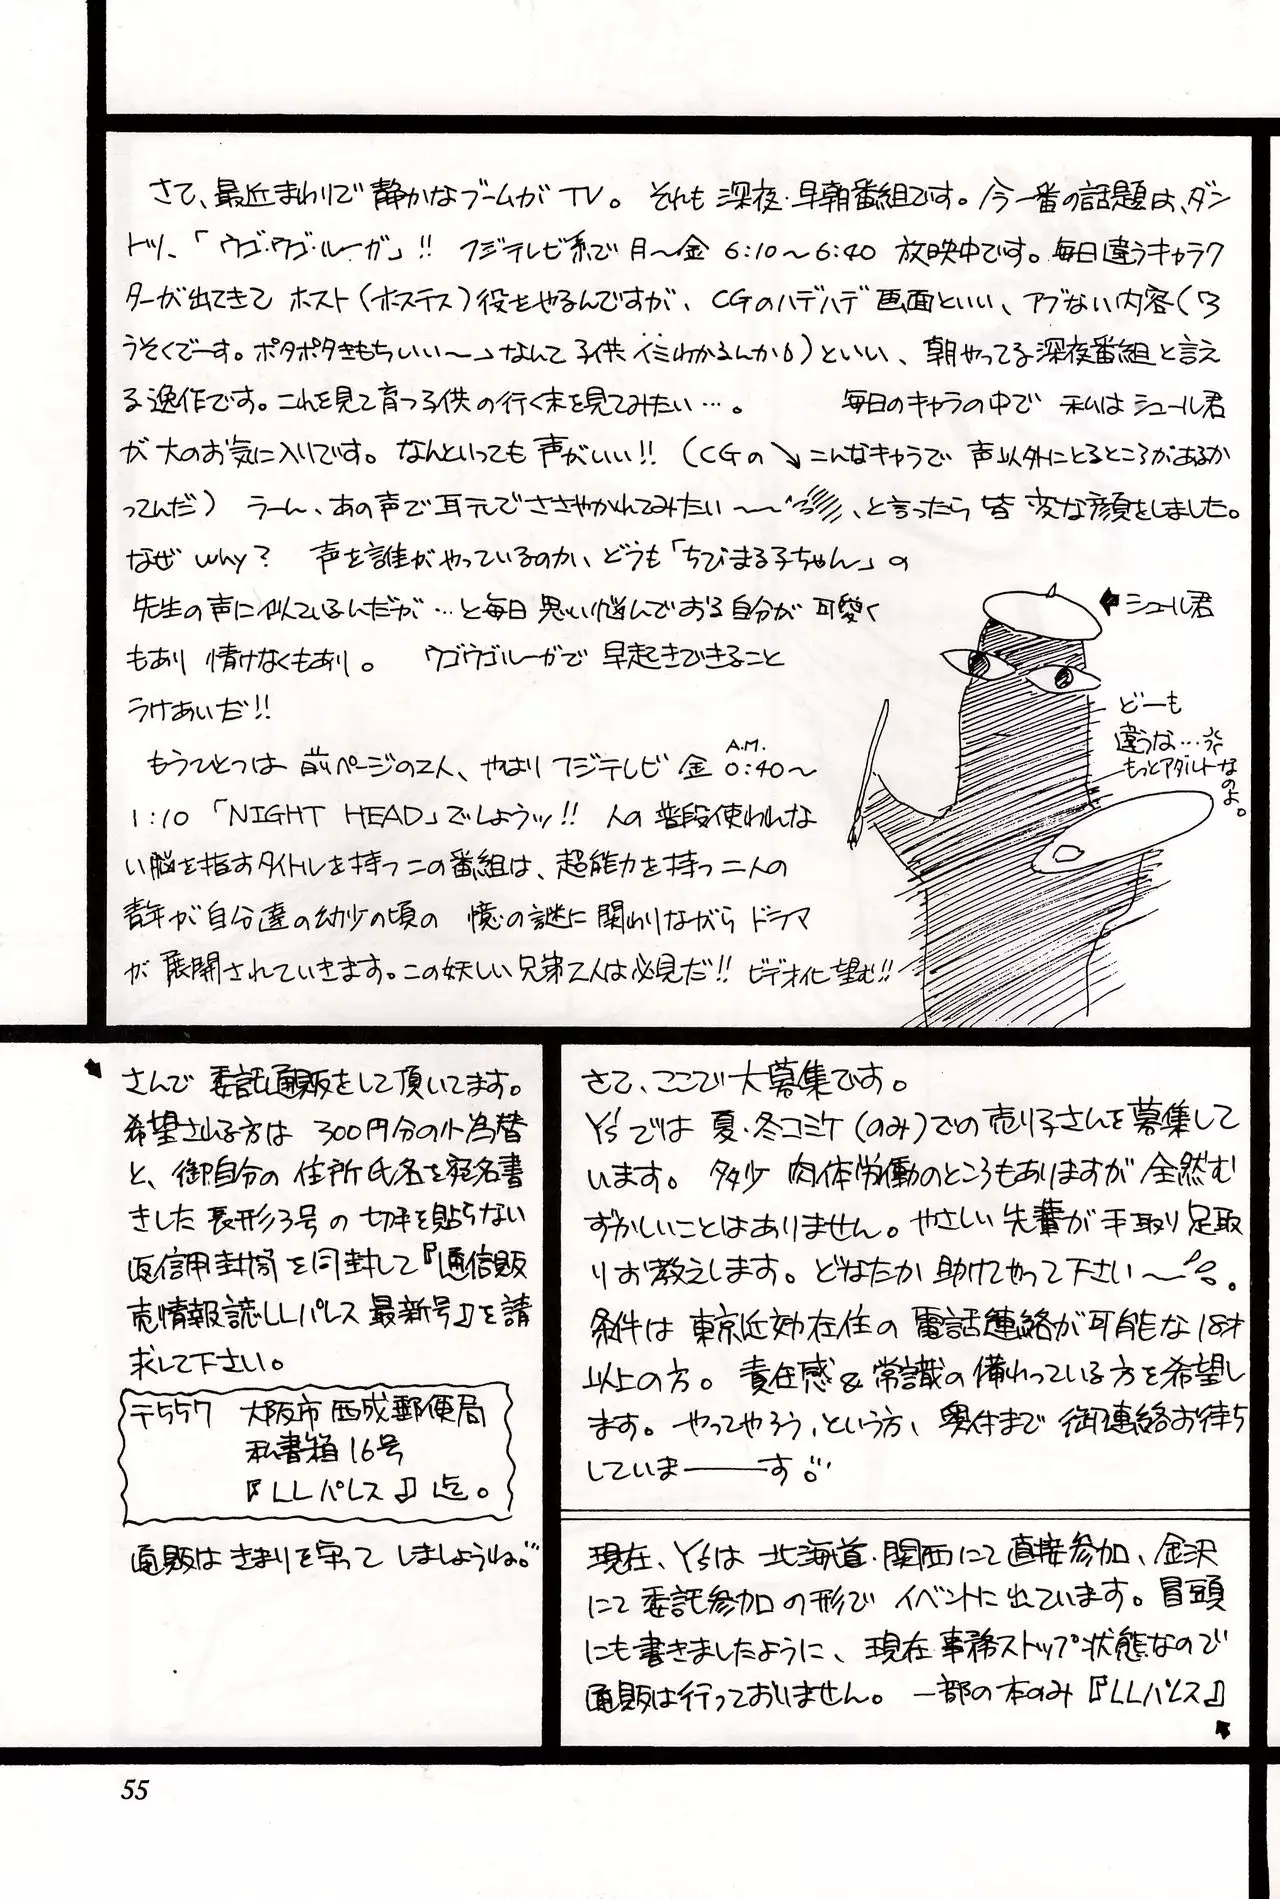 さて、最近まわりで静かなブームがTV。それも深夜・早朝番組です。今一番の話題は、ダン
トツ、「ウゴ・ウゴ・ルーガ」!! フジテレビ系で月〜金 6:10〜6:40 放映中です。毎日違うキャラク
ターが出てきて ホスト(ホステス)役をやるんですが、CGのハデハデ画面といい、アブない内容(ワ
うそくでーす。ポタポタきもちいい〜なんて子供イミわかるんか)といい、朝やってる深夜番組と言え
る逸作です。これを見て育つ子供の行く末を見てみたい…。 毎日のキャラの中で 私はシュール君
が大のお気に入りです。なんといっても声がいい!! (CGの↘こんなキャラで 声以外にとるところがあるか
ってんだ) うーん、あの声で耳元でささやかれてみたい〜〜、と言ったら皆変な顔をしました。
なぜ why? 声を誰がやっているのか、どうも「ちびまる子ちゃん」の
先生の声に似ているんだが…と毎日思い悩んでおる自分が可愛く
もあり 情けなくもあり。 ウゴウゴルーガで 早起きできること
うけあいだ!!
←シュール君
どーも
違うな…
もっとアダルトなのよ。
もうひとつは 前ページの2人、やはりフジテレビ 金 A.M. 0:40〜
1:10 「NIGHT HEAD」でしょうッ!! 人の普段使われな
い脳を指すタイトルを持つこの番組は、超能力を持つ二人の
青年が自分達の幼少の頃の 憶の謎に関わりながら ドラマ
が展開されていきます。この妖しい兄弟2人は必見だ!! ビデオ化望む!!
さて、ここで大募集です。
Y'sでは 夏・冬コミケ(のみ)での売り子さんを募集して
います。多少 肉体労働のところもありますが 全然む
ずかしいことはありません。やさしい先輩が手取り足取
りお教えします。どなたか助けてやって下さい〜。
条件は 東京近効在住の 電話連絡が可能な18才
以上の方。責任感&常識の備わっている方を希望し
ます。やってやろう、という方、奥付まで 御連絡お待ち
していまーーーす。
現在、Y'sは 北海道・関西にて直接参加、金沢
にて委託参加の形で イベントに出ています。冒頭
にも書きましたように、現在事務ストップ状態なので
通販は行っておりません。一部の本のみ『LLパレス』
さんで 委託通販をして頂いてます。
希望される方は 300円分の小為替
と、御自分の 住所氏名を宛名書
きした長形3号の 切手を貼らない
返信用封筒を同封して『通信販
売情報誌LLパレス 最新号』を請
求して下さい。
〒557 大阪市西成郵便局
私書箱16号
『LLパレス』迄。
通販はきまりを守って しましょうね。
55